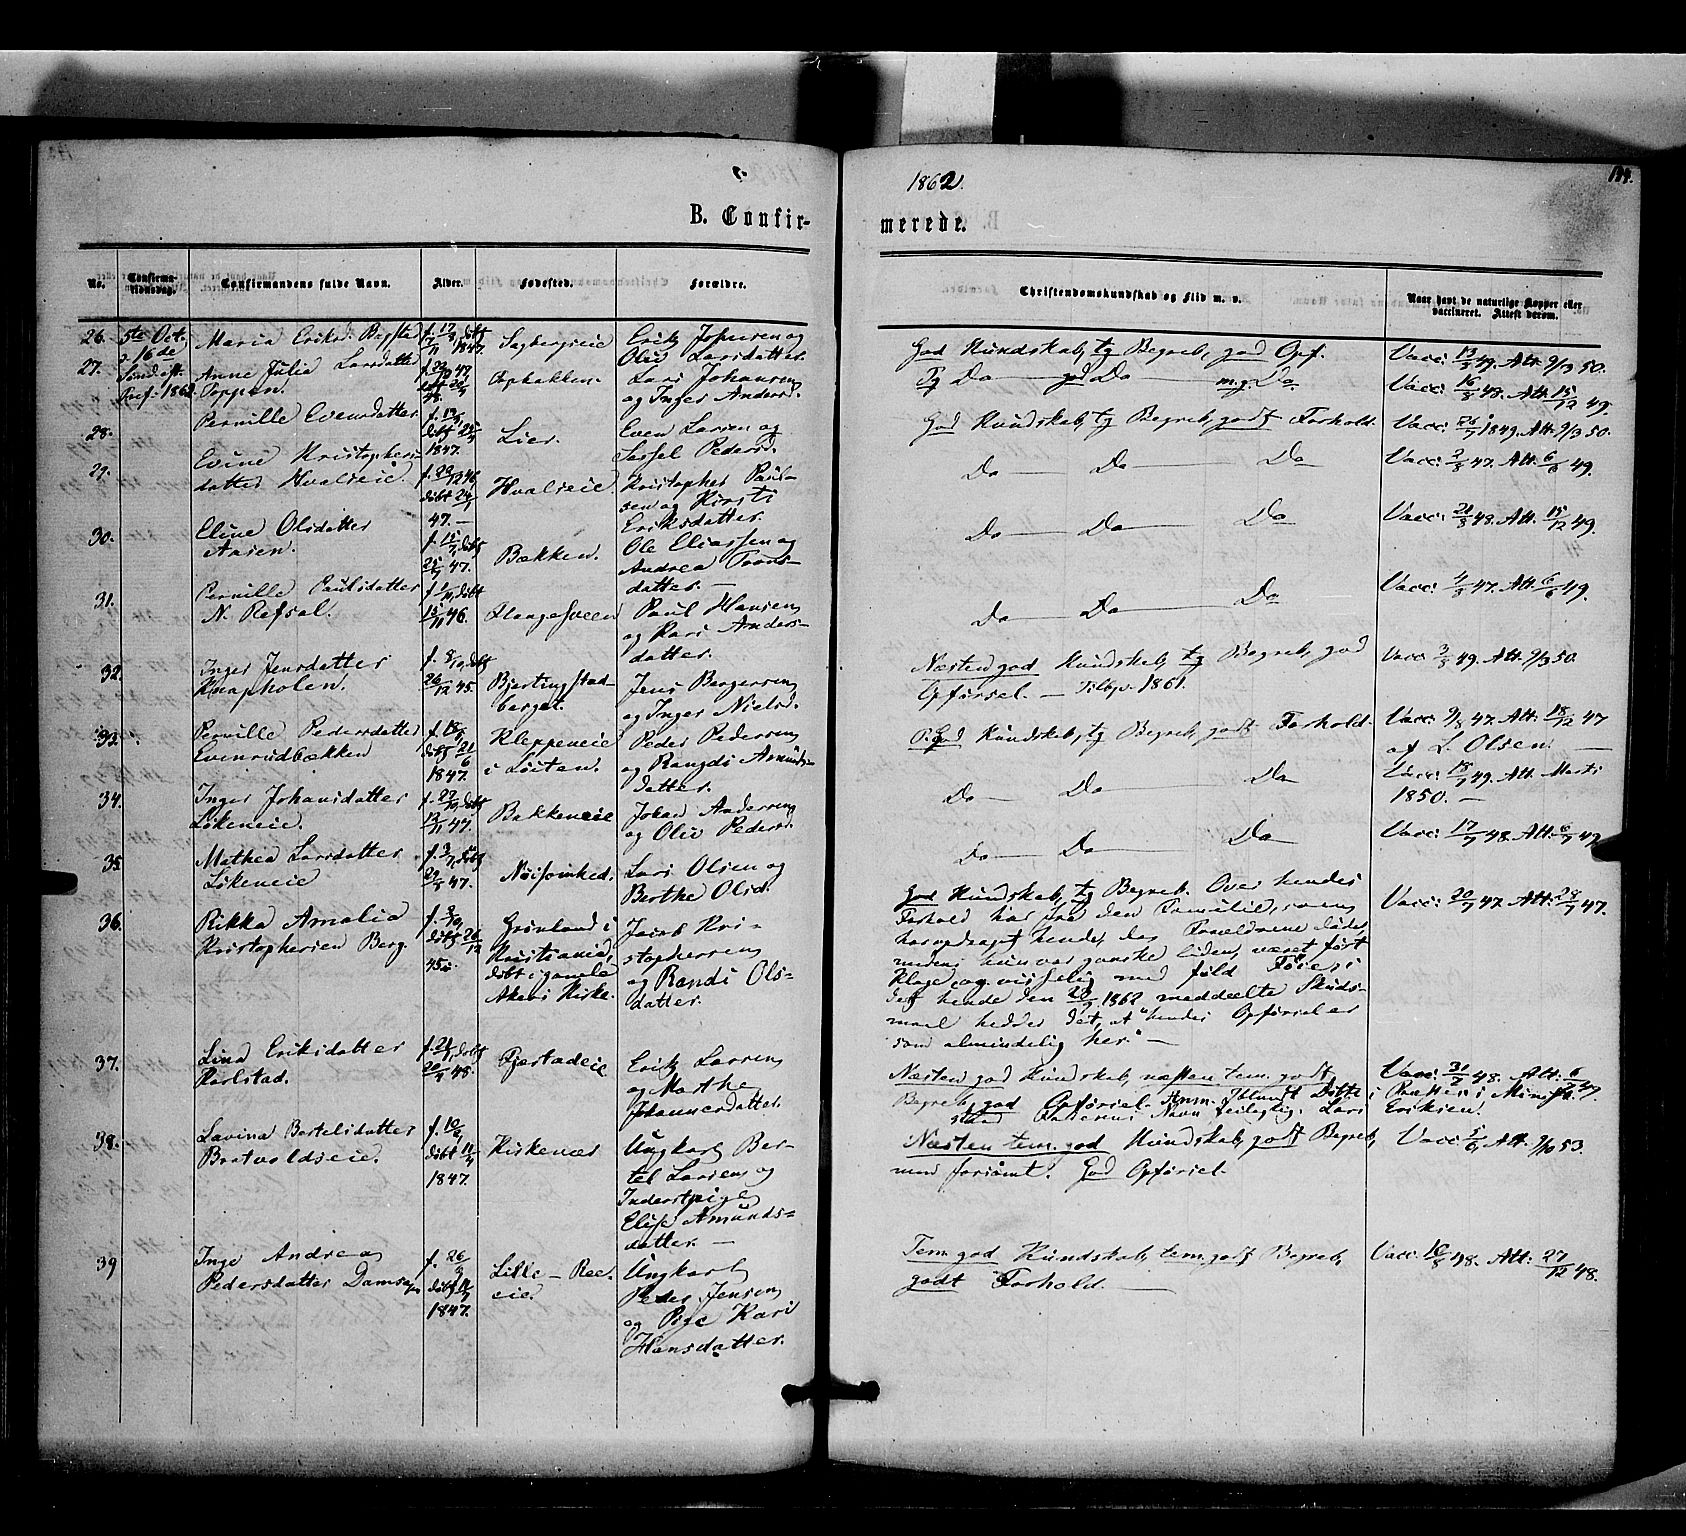 1862.
194.
B. Confir-
merede.
No.
Confirma-
tionsdag.
Confirmandens fulde Navn.
Alder.
Fødested.
Forældre.
Christendomskundskab og Flid m. v.
Naar havt de naturlige Kopper eller
vaccineret. Attest derom.
26.
5te Octo.
16de
Maria Eriksd.
1847.
Sagbergseie
Erik Johnsen og
Oliv Larsdatter.
God Kundskab, tg Begreb, god Opf.
Vacc: 13/5 49. Att. 9/3 50.
27.
1862.
Anne Julia Larsdatter
Toppen.
Opbakken.
Lars Johansen
og Inger Andersd.
Tg Do gd Do m.g. Do
Vacc: 16/8 48. Att. 15/12 49.
28.
Pernille Evensdatter
1847.
Lier.
Even Larsen og
Sissel Pedersd.
God Kundskab, tg Begreb, godt Forhold.
Vacc: 26/7 1849. Att. 9/3 50.
29.
Evine Kristophers-
datter Hvalseie.
47.
Hvalseie.
Kristopher Paul-
sen og Kirsti
Eriksdatter.
Do Do Do
Vacc: 2/8 47. Att. 6/6 49.
30.
Eline Olsdatter
Aasen.
47.
Bækken.
Ole Eliassen og
Andrea Trons-
datter.
Do Do Do
Vacc: 21/8 48. Att. 15/12 49.
31.
Pernille Paulsdatter
N. Refsal.
15/11 46.
Paul Hansen
og Kari Anders-
datter.
Do Do Do
Vacc: 4/8 47. Att. 6/6 49.
32.
Inger Jensdatter
Knapholen.
26/12 45.
Bjertingstad-
berget.
Jens Bergersen
og Inger Nielsd.
Næsten god Kundskab, tg Begreb, god
Opførsel. — Tilbv. 1861.
Vacc: 3/8 49. Att. 9/3 50.
33.
Pernille Pedersdatter
Evenrudbækken
1847.
Kleppeneie
i Løiten.
Peder Pedersen
og Rangdi Amunds-
datter.
T. God Kundskab, tg Begreb, godt Forhold.
Vacc: 9/8 47. Att. 18/12 47
af L. Olsen.
34.
Inger Johansdatter
Løkeneie.
13/11 47.
Bakkeneie
Johan Andersen
og Oliv Pedersd.
Do Do Do
Vacc: 18/7 49. Att. Marts
1850.
35
Mathea Larsdatter
Løkeneie
47.
Lars Olsen og
Berthe Olsd.
Do Do Do
Vacc: 17/7 48. Att. 6/7 49.
36.
Rikka Amalia
Kristophersen Berg.
45.
Grønland i
Kristiania,
døbt i gamle
Akers Kirke.
Jacob Kri-
stophersen
og Randi Ols-
datter.
God Kundskab, tg Begreb. Over hendes
Forhold har fra den Familie, som
har opdraget hende, da Forældrene døde,
medens hun var ganske liden, været ført
Klage, og visselig med fuld Føie; i
det hende den 1862 meddeelte Skuds-
maal hedder det, at "hendes Opførsel er
som almindelig her."
Vacc: 20/7 47. Att. 28/7 47.
37.
Lina Eriksdatter
Karlstad.
48.
Fjæstadeie
Erik Larsen
og Marthe
Johannesdatter.
Næsten god Kundskab, næsten tem. godt
Begreb, god Opførsel.
Vacc: 31/7 48. Att. 6/7 49
38.
Lavina Bertelsdatter
Bratvoldseie.
1847.
Kirkenær
Ungkarl Ber-
tel Larsen og
Inderstpige
Elise Amunds-
datter.
Næsten tem. god Kundskab, godt Begreb,
men forsømt. God Opførsel.
Vacc: 5/6, Att. 9/10 53.
39
Inge Andrea
Pedersdatter
f. 26/3
1847.
Lille-Ree-
eie.
Ungkarl
Peder Jensen
og Pige Kari
Hansdatter.
Tem. god Kundskab, tem. godt Begreb,
godt Forhold.
Vacc: 16/8 48. Att: 27/12 48.